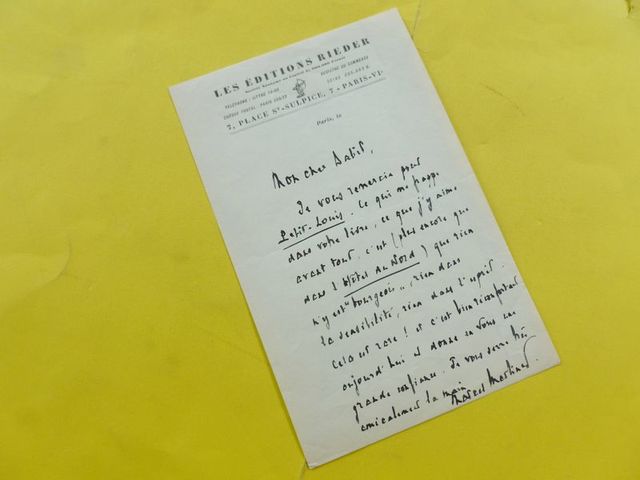 LES ÉDITIONS RIEDER
TÉLÉPHONE : LITTRÉ
CHÈQUE POSTAL : PARIS
REGISTRE DU COMMERCE
SEINE
7, PLACE St-SULPICE, 7 - PARIS-VIe
Paris, le
Mon cher Dabit,
Je vous remercie pour
Petit-Louis. Ce qui me frappe
dans votre livre, ce que j'y aime
avant tout, c'est (plus encore que
dans l'Hôtel du Nord) que rien
n'y est "bourgeois", rien dans
la sensibilité, rien dans l'esprit.
Cela est rare ! et c'est bien réconfortant
aujourd'hui et donne en vous une
grande confiance. Je vous serre très
amicalement la main.
Marcel Martinet.